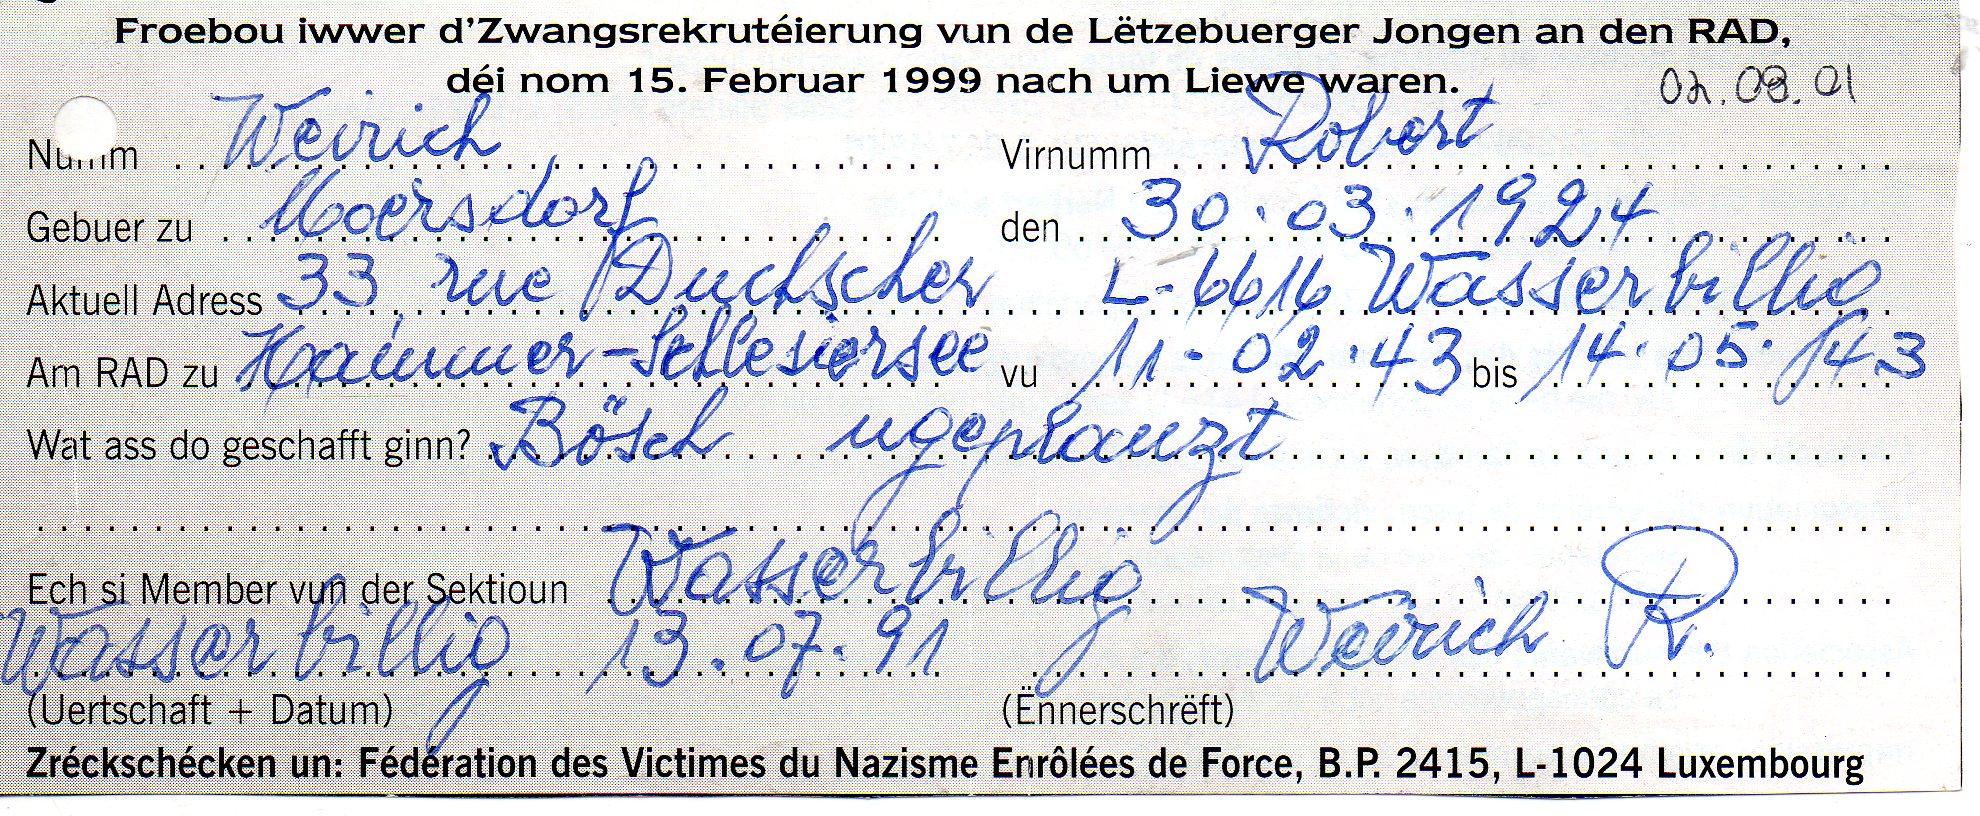 Froebou iwwer d'Zwangsrekrutéierung vun de Lëtzebuerger Jongen an den RAD,
déi nom 15. Februar 1999 nach um Liewe waren.
02.08.01
Numm Weirich Virnumm Robert
Gebuer zu Moersdorf den 30.03.1924
Aktuell Adress 33, rue Duchscher L-6616 Wasserbillig
Am RAD zu Hammer-Schlesiersee vu 11.02.43 bis 14.05.43
Wat ass do geschafft ginn? Bösch ugeplanzt
Ech si Member vun der Sektioun Wasserbillig
Wasserbillig 13.07.91 Weirich R.
(Uertschaft + Datum) (Ënnerschrëft)
Zréckschécken un: Fédération des Victimes du Nazisme Enrôlées de Force, B.P. 2415, L-1024 Luxembourg